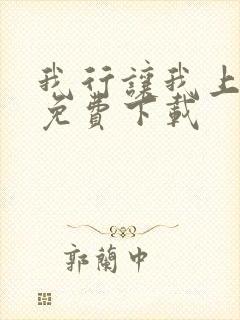 我行讓我上
免費下載
郭蘭中